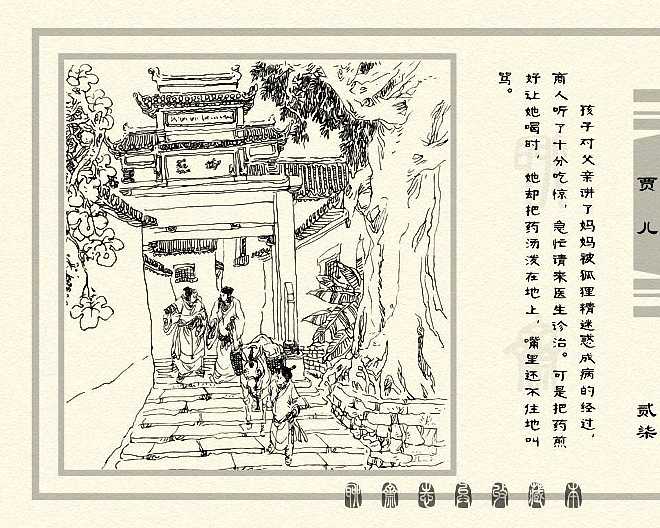 孩子对父亲讲了妈妈被狐狸精迷惑成病的经过，
商人听了十分吃惊，急忙请来医生诊治。可是把药煎
好让她喝时，她却把药汤泼在地上，嘴里还不住地叫
骂。
贾儿
贰柒